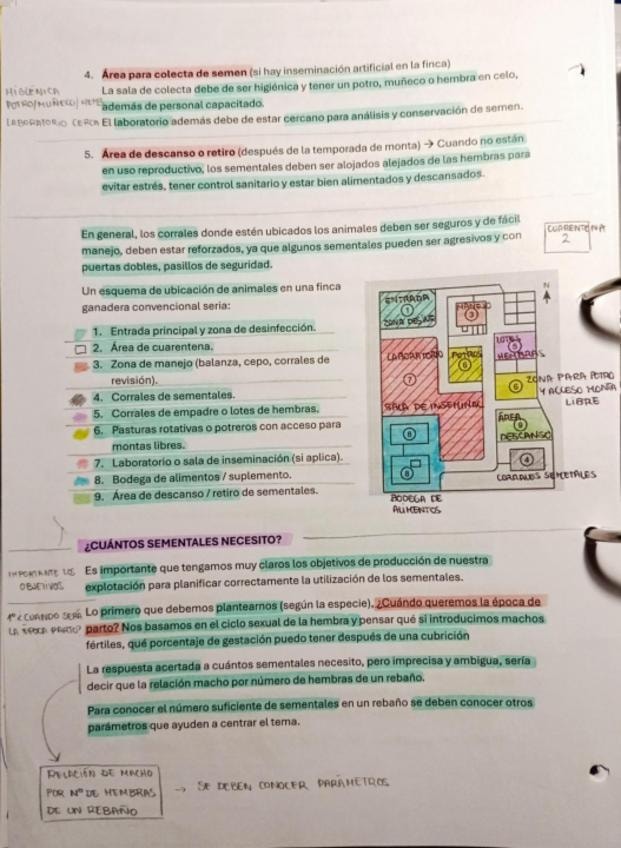 4. Área para colecta de semen (si hay inseminación artificial en la finca)
HIGIÉNICA
La sala de colecta debe de ser higiénica y tener un potro, muñeco o hembra en celo,
POTRO/MUÑECO/HEMB
además de personal capacitado.
LABORATORIO CERCA
El laboratorio además debe de estar cercano para análisis y conservación de semen.
5. Área de descanso o retiro (después de la temporada de monta) → Cuando no están
en uso reproductivo, los sementales deben ser alojados alejados de las hembras para
evitar estrés, tener control sanitario y estar bien alimentados y descansados.
En general, los corrales donde estén ubicados los animales deben ser seguros y de fácil
manejo, deben estar reforzados, ya que algunos sementales pueden ser agresivos y con
puertas dobles, pasillos de seguridad.
CUARENTENA
2
Un esquema de ubicación de animales en una finca
ganadera convencional seria:
1. Entrada principal y zona de desinfección.
2. Área de cuarentena.
3. Zona de manejo (balanza, cepo, corrales de
revisión).
4. Corrales de sementales.
5. Corrales de empadre o lotes de hembras.
6. Pasturas rotativas o potreros con acceso para
montas libres.
7. Laboratorio o sala de inseminación (si aplica).
8. Bodega de alimentos / suplemento.
9. Área de descanso / retiro de sementales.
N
ENTRADA
1
ZONA DESINF
MANEJO
3
LOTES
5
HEMBRAS
LABORATORIO
7
POTROS
6
6
ZONA PARA POTRO
Y ACCESO MONTA
LIBRE
SALA DE INSEMINAC
ÁREA
9
DESCANSO
8
8
4
CORRALES SEMETALES
BODEGA DE
ALIMENTOS
¿CUÁNTOS SEMENTALES NECESITO?
IMPORTANTE LOS
OBJETIVOS
Es importante que tengamos muy claros los objetivos de producción de nuestra
explotación para planificar correctamente la utilización de los sementales.
1º ¿CUANDO SERÁ
LA ÉPOCA PARTO?
Lo primero que debemos plantearnos (según la especie), ¿Cuándo queremos la época de
parto? Nos basamos en el ciclo sexual de la hembra y pensar qué si introducimos machos
fértiles, qué porcentaje de gestación puedo tener después de una cubrición
La respuesta acertada a cuántos sementales necesito, pero imprecisa y ambigua, sería
decir que la relación macho por número de hembras de un rebaño.
Para conocer el número suficiente de sementales en un rebaño se deben conocer otros
parámetros que ayuden a centrar el tema.
RELACIÓN DE MACHO
POR Nº DE HEMBRAS
DE UN REBAÑO
→ SE DEBEN CONOCER PARÁMETROS